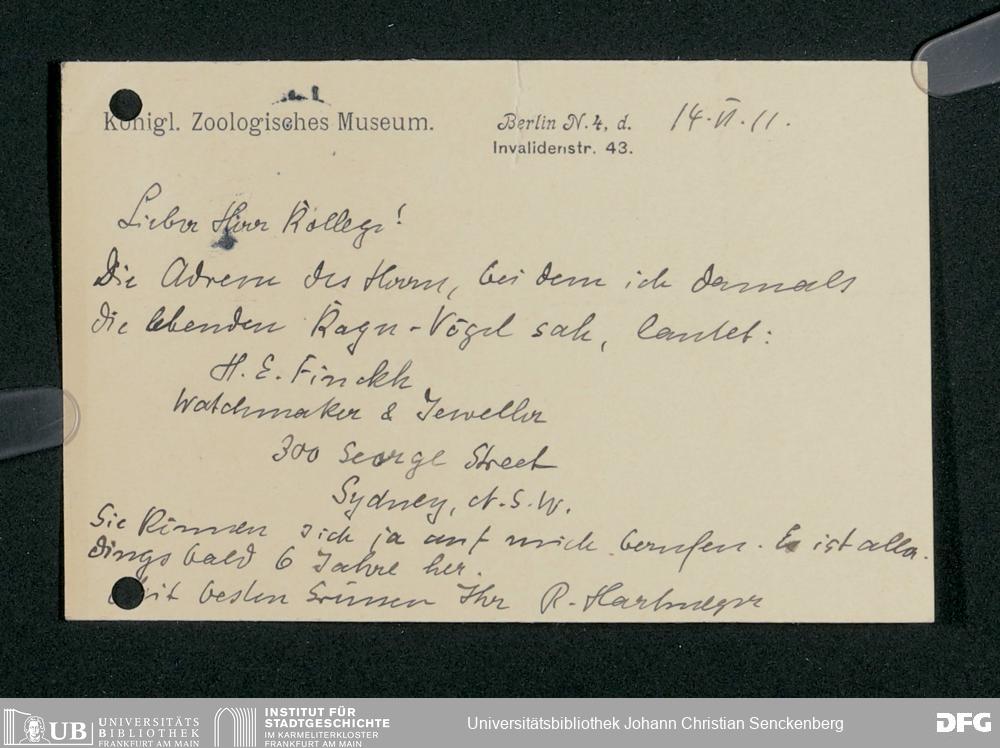 Königl. Zoologisches Museum.
Berlin N. 4, d. 14. VI. 11.
Invalidenstr. 43.
Lieber Herr Kollege!
Die Adresse des Herrn, bei dem ich damals
die lebenden Kagu-Vögel sah, lautet:
H. E. Finckh
Watchmaker & Jeweller
300 George Street
Sydney, N. S. W.
Sie können sich ja auf mich berufen. Es ist aller-
dings bald 6 Jahre her.
Mit besten Grüssen Ihr R. Hartmeyer
UB UNIVERSITÄTS
BIBLIOTHEK
FRANKFURT AM MAIN
INSTITUT FÜR
STADTGESCHICHTE
IM KARMELITERKLOSTER
FRANKFURT AM MAIN
Universitätsbibliothek Johann Christian Senckenberg
DFG